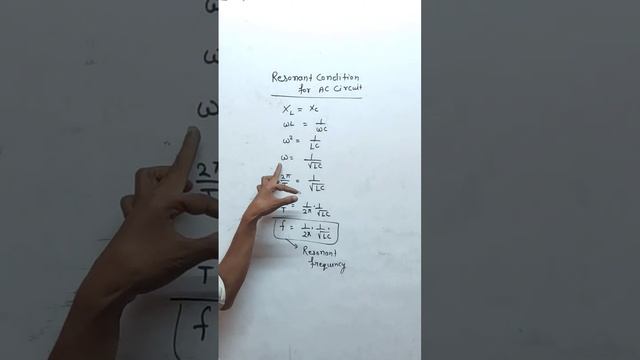 Resonant Condition
for AC Circuit
X_L = X_C
ωL = 1/ωC
ω² = 1/LC
ω = 1/√LC
2π = 1/√LC
1/T = 1/2π · 1/√LC
f = 1/2π · 1/√LC
Resonant
frequency